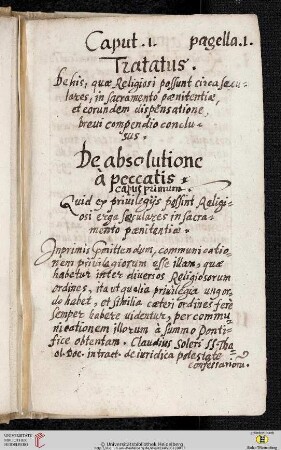 Caput. I. pagella. I.
Tratatus.
De his, quæ Religiosi possunt circa sæcu-
lares, in sacramento pænitentiæ,
et eorundem dispensatione,
brevi compendio conclu-
sus.
De absolutione
à peccatis.
Caput primum.
Quid ex privilegijs possint Religi-
osi erga sæculares in sacra-
mento pænitentiæ.
Inprimis præmittendum, communicatio-
nem privilegiorum esse illam, quæ
habetur inter diversos Religiosorum
ordines, ita ut qualia privilegia unus or-
do habet, et similia cæteri ordines fere
semper habere videntur, per commu-
nicationem illorum à summo Ponti-
fice obtentam. Claudius Soleri SS Theo-
ol. Doc. in tract. de iuridica potestate
confessarior.
Universitätsbibliothek Heidelberg